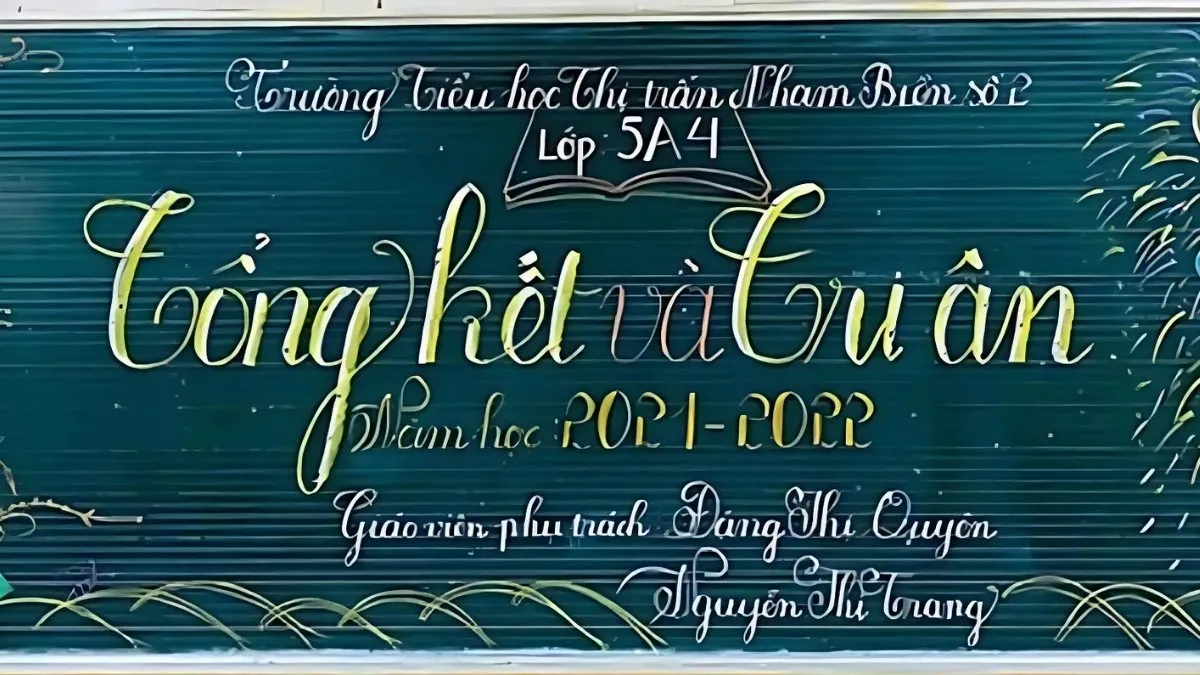 Trường Tiểu học Thị trấn Nham Biền số 2
Lớp 5A4
Tổng kết và Tri ân
Năm học 2021-2022
Giáo viên phụ trách Đặng Thị Quyên
Nguyễn Thị Trang